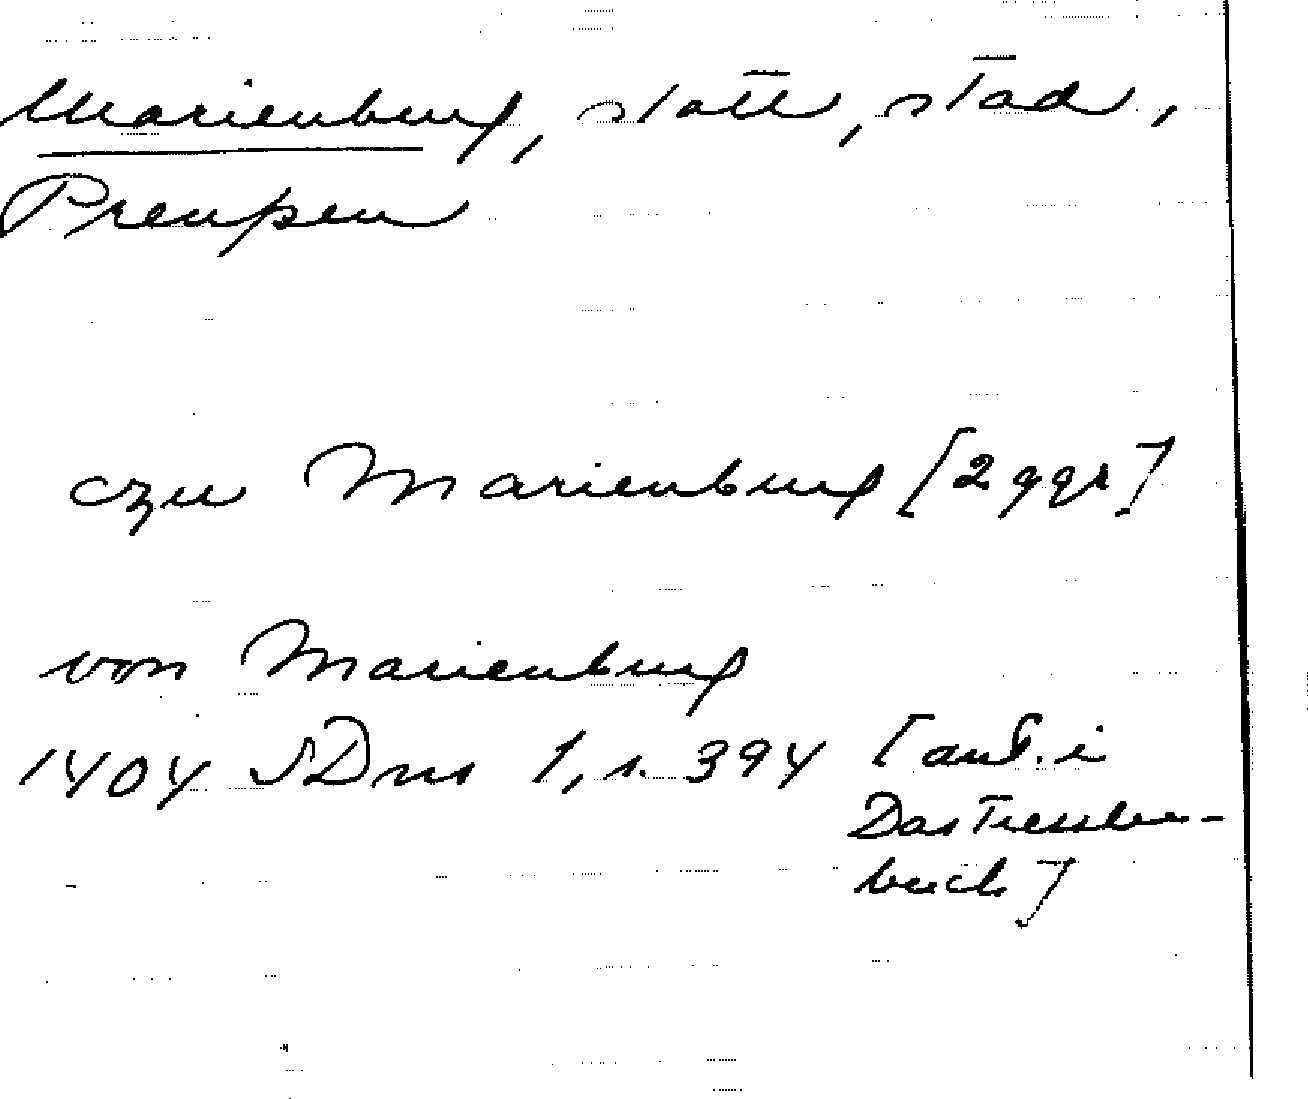 Marienburg, slott, stad,
Preußen
czu Marienburg [2 ggr]
von Marienburg
1404 SDns 1, s. 394 [ant. i
Das Tressler-
buch]